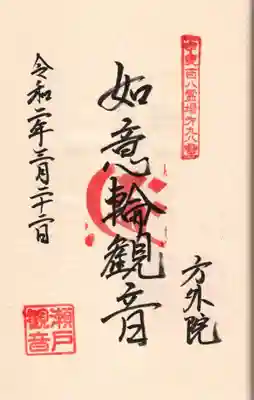 甲東百八霊場第九八番
方外院
如意輪観音
令和二年三月二十二日
瀬戸
観音